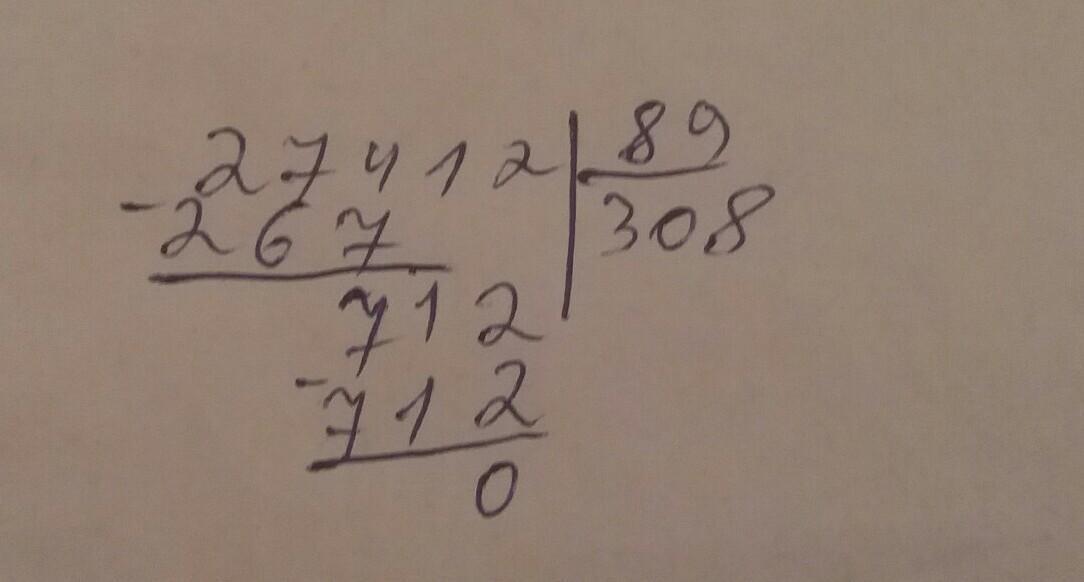 27412 | 89
- 267 | 308
712
- 712
0